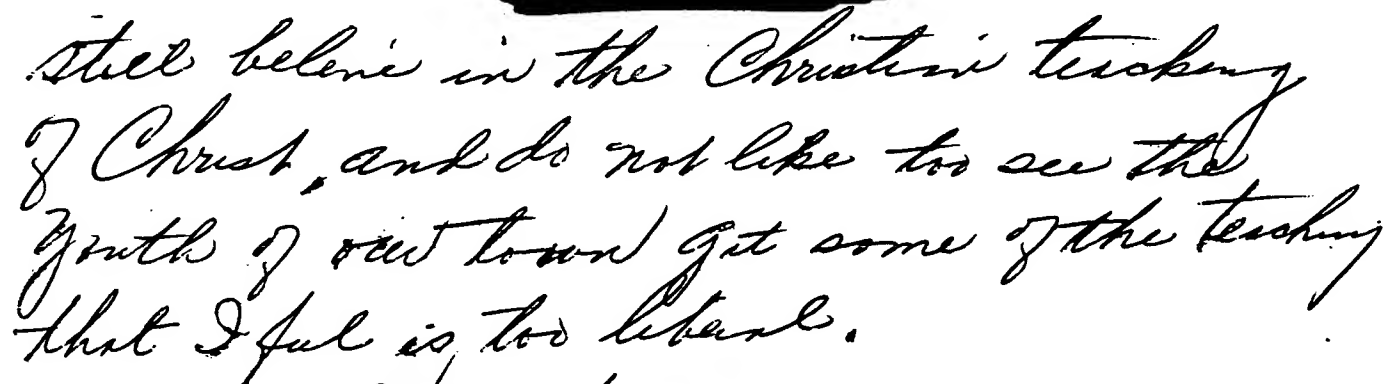 still believe in the Christian teaching
of Christ, and do not like too see the
Youth of our town get some of the teaching
that I feel is too liberal.